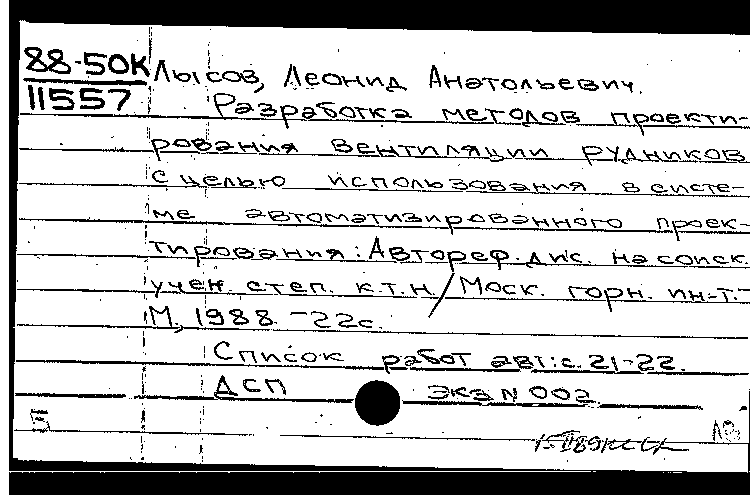 88-50К Лысов, Леонид Анатольевич.
11557 Разработка методов проекти-
рования вентиляции рудников
с целью использования в систе-
ме автоматизированного проек-
тирования: Автореф. дис. на соиск.
учен. степ. к.т.н./Моск. горн. ин-т.-
М., 1988. -22с.
Список работ авт.: с. 21-22.
ДСП ЭКЗ N 002
Б